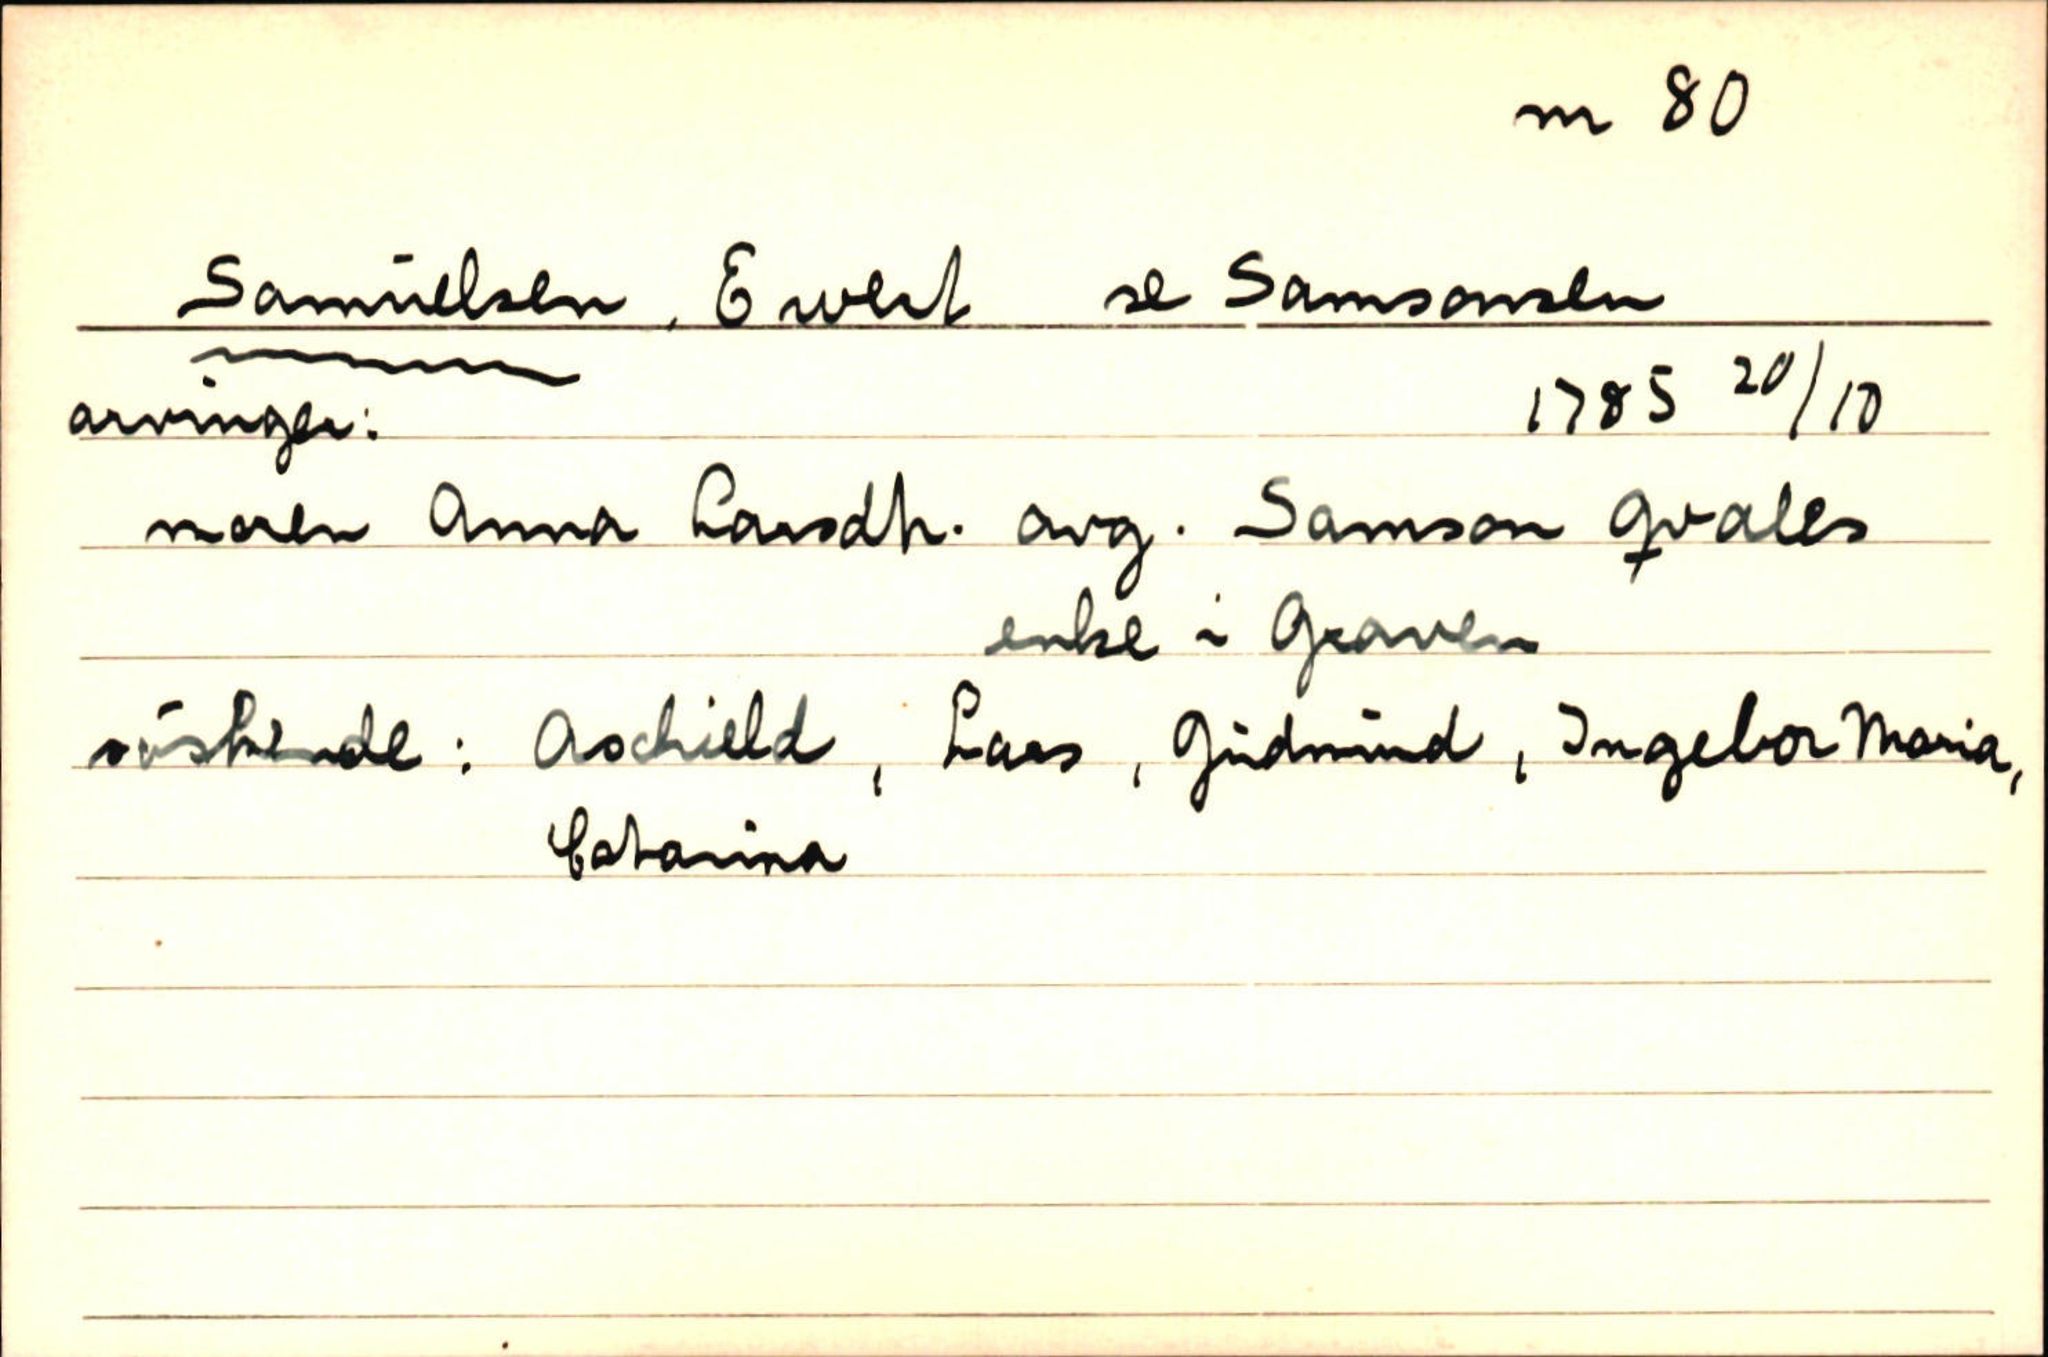 m 80
Samuelsen, Ewert se Samsonsen
arvinger: 1785 20/10
moren Anna Larsdtr. avg. Samson Qvales
enke i Graven
søskende: Aschield, Lars, Gudmund, Ingebor Maria,
Catarina